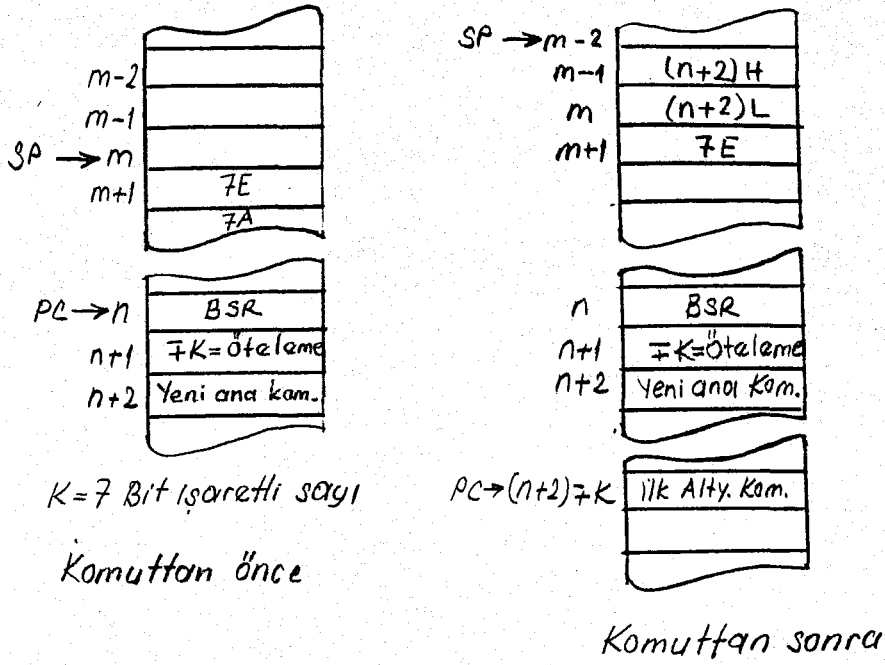 m-2
m-1
SP → m
m+1 7E
7A
PC → n BSR
n+1 ∓K=Öteleme
n+2 Yeni ana kom.
K=7 Bit işaretli sayı
Komuttan önce
SP → m-2
m-1 (n+2)H
m (n+2)L
m+1 7E
n BSR
n+1 ∓K=Öteleme
n+2 Yeni ana Kom.
PC→(n+2)∓K ilk Alty. Kom.
Komuttan sonra